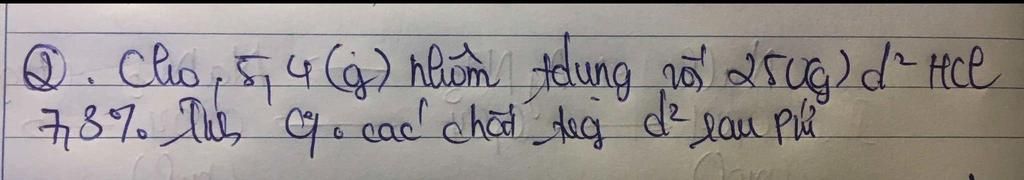 2. Cho 5,4 (g) nhôm tdụng với 250(g) d² HCl
7,3% Tính C%. các chất trg d² sau pứ